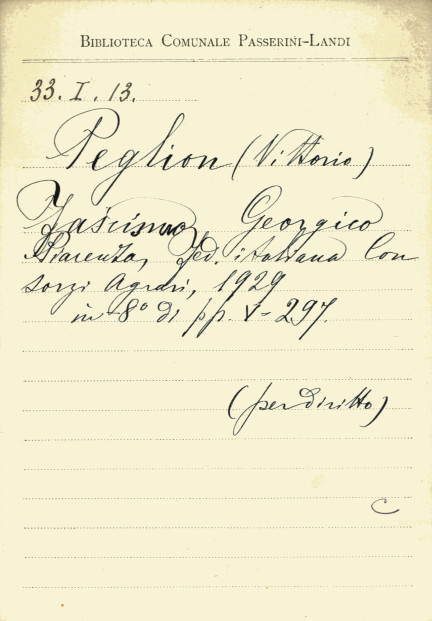 BIBLIOTECA COMUNALE PASSERINI-LANDI
33. I. 13.
Peglion (Vittorio)
Fascismo Georgico
Piacenza, Fed. italiana Con
sorzi Agrari, 1929
in-8° di pp. V-297.
(per diritto)
C